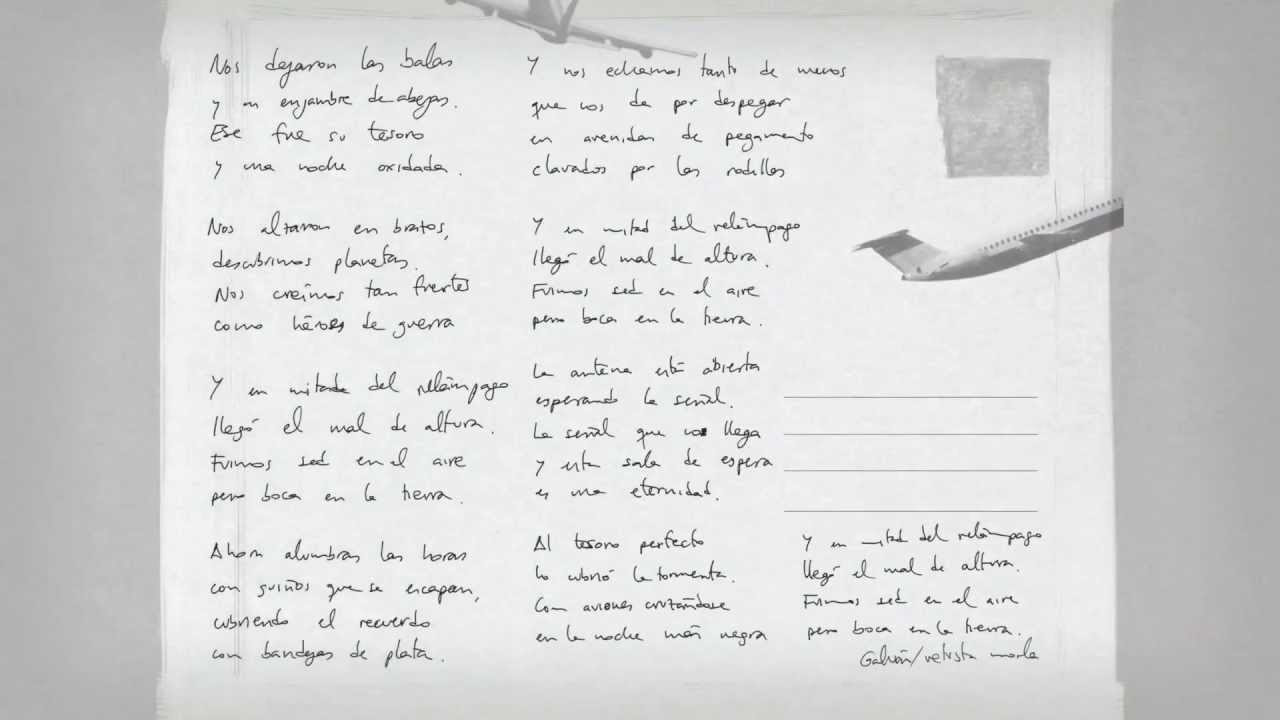 Nos dejaron las balas
y un enjambre de abejas.
Ese fue su tesoro
y una noche oxidada.
Nos alzaron en brazos,
descubrimos planetas.
Nos creímos tan fuertes
como héroes de guerra
Y en mitad del relámpago
llegó el mal de altura.
Fuimos sed en el aire
pero boca en la tierra.
Ahora alumbras las horas
con guiños que se escapan,
cubriendo el recuerdo
con bandejas de plata.
Y nos echamos tanto de menos
que nos da por despegar
en avenidas de pegamento
clavados por las rodillas
Y en mitad del relámpago
llegó el mal de altura.
Fuimos sed en el aire
pero boca en la tierra.
La antena está abierta
esperando la señal.
La señal que no llega
y esta sala de espera
es una eternidad.
Al tesoro perfecto
lo cubrió la tormenta.
Con aviones cruzándose
en la noche más negra
Y en mitad del relámpago
llegó el mal de altura.
Fuimos sed en el aire
pero boca en la tierra.
Galván/vetusta morla